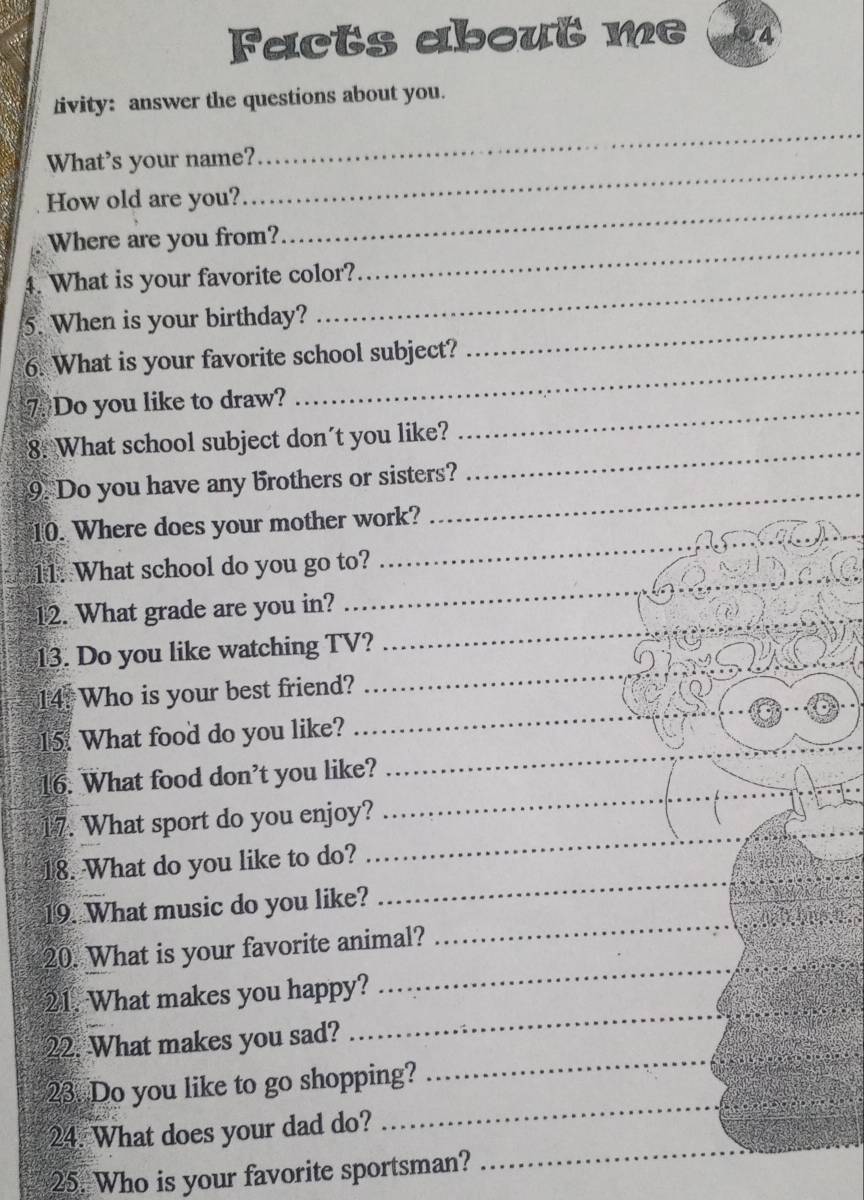 Facts about me
4
tivity: answer the questions about you.
What's your name?
How old are you?
Where are you from?
4. What is your favorite color?
5. When is your birthday?
6. What is your favorite school subject?
7. Do you like to draw?
8. What school subject don´t you like?
9. Do you have any brothers or sisters?
10. Where does your mother work?
11. What school do you go to?
12. What grade are you in?
13. Do you like watching TV?
14. Who is your best friend?
15. What food do you like?
16. What food don't you like?
17. What sport do you enjoy?
18. What do you like to do?
19. What music do you like?
20. What is your favorite animal?
21. What makes you happy?
22. What makes you sad?
23. Do you like to go shopping?
24. What does your dad do?
25. Who is your favorite sportsman?